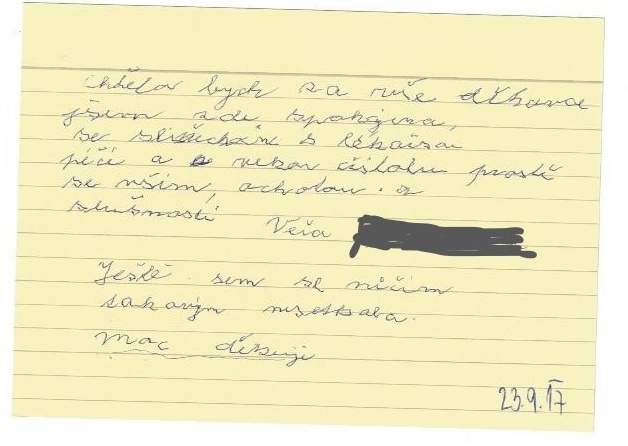 chtěla bych za vše děkovat
jsem zde spokojena,
se
péčí a velkou čistotu prostě
se vším, ochotou. a
slušností Věra
Ještě sem se ničím
takovým nesetkala.
moc děkuji
23.9.17